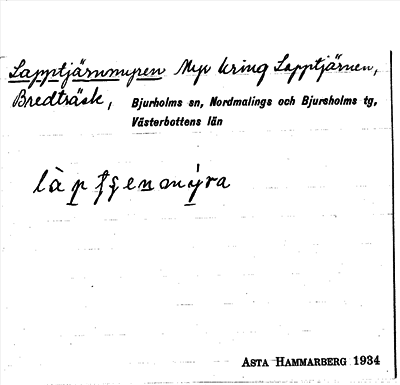 Lapptjärnmyren Myr kring Lapptjärnen,
Bredträsk, Bjurholms sn, Nordmalings och Bjursholms tg,
Västerbottens län
làp tʃenmýra
ASTA HAMMARBERG 1934